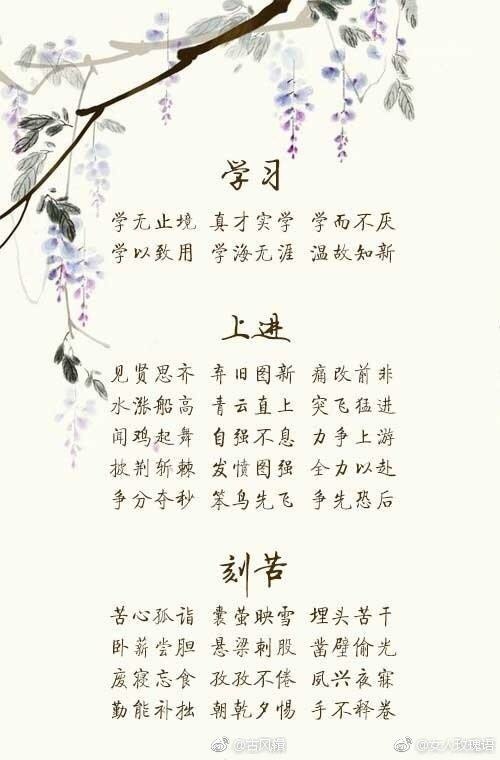 学习
学无止境 真才实学 学而不厌
学以致用 学海无涯 温故知新
上进
见贤思齐 弃旧图新 痛改前非
水涨船高 青云直上 突飞猛进
闻鸡起舞 自强不息 力争上游
披荆斩棘 发愤图强 全力以赴
争分夺秒 笨鸟先飞 争先恐后
刻苦
苦心孤诣 囊萤映雪 埋头苦干
卧薪尝胆 悬梁刺股 凿壁偷光
废寝忘食 孜孜不倦 夙兴夜寐
勤能补拙 朝乾夕惕 手不释卷
@古风缉 @女人玫瑰语